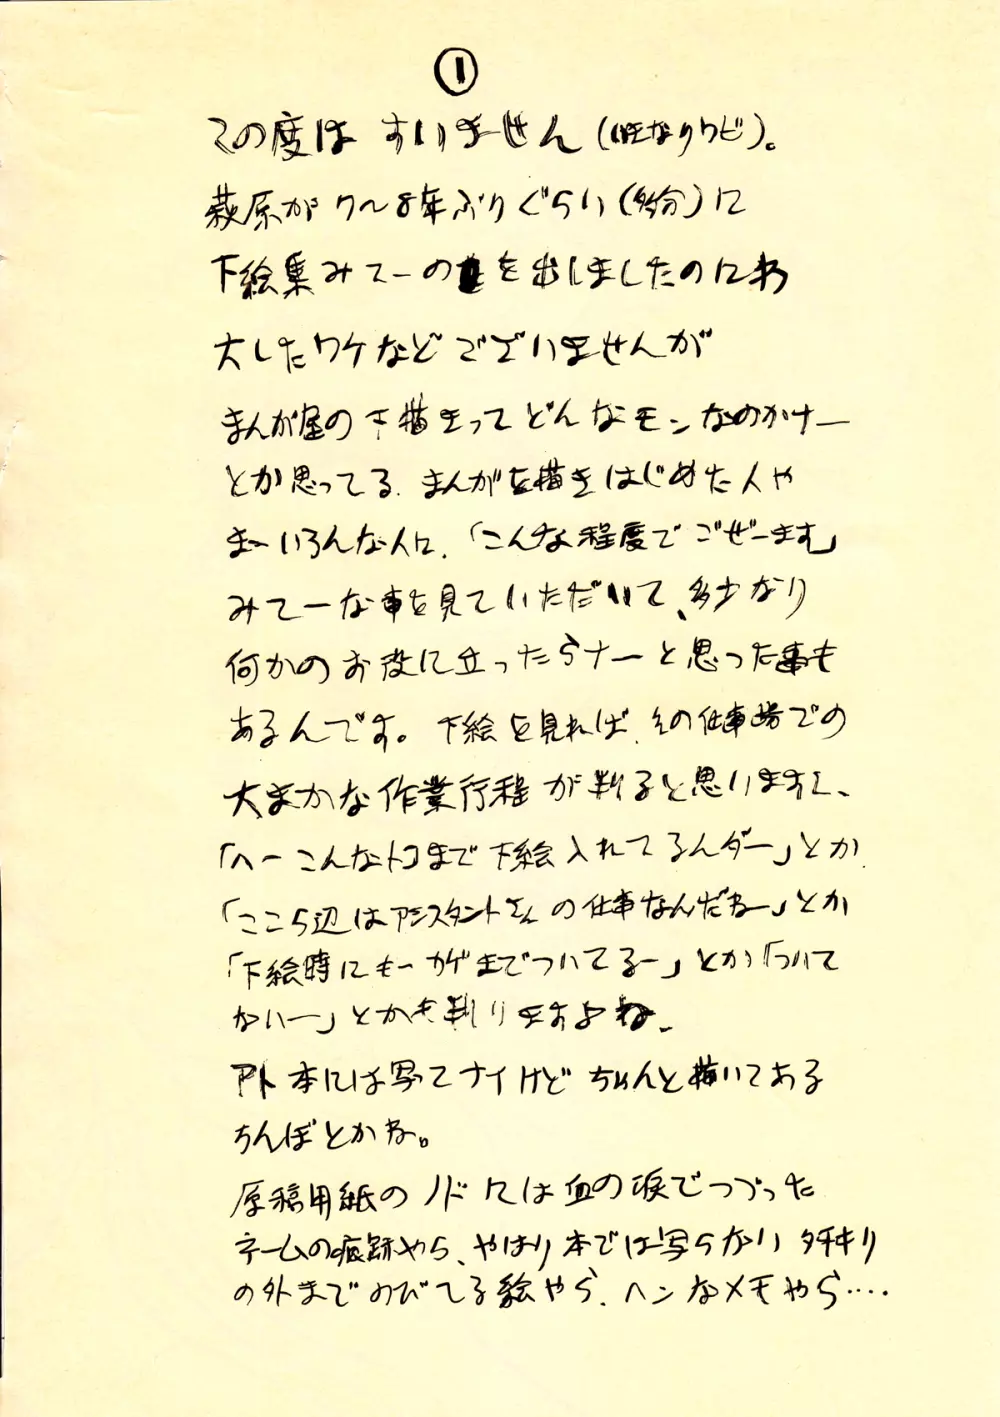 ①
この度は すいません(いきなりワビ)。
萩原が 7〜8年ぶりぐらい(多分)に
下絵集みてーのを出しましたのにわ
大したワケなどございませんが
まんが屋の下描きってどんなモンなのかナー
とか思ってる、まんがを描きはじめた人や
まーいろんな人に、「こんな程度でごぜーます」
みてーな事を見ていただいて、多少なり
何かのお役に立ったらナーと思った事も
あるんです。下絵を見れば、その仕事場での
大まかな作業行程が判ると思いますし、
「へーこんなトコまで下絵入れてるんダー」とか
「ここら辺はアシスタントさんの仕事なんだねー」とか
「下絵時にもーカゲまでついてるー」とか「ついて
ないー」とかも判りますよね、
アト本には写ってナイけどちゃんと描いてある
ちんぽとかね。
原稿用紙のノドには血の涙でつづった
ネームの痕跡やら、やはり本では写らない タチキリ
の外までのびてる絵やら、ヘンなメモやら‥‥